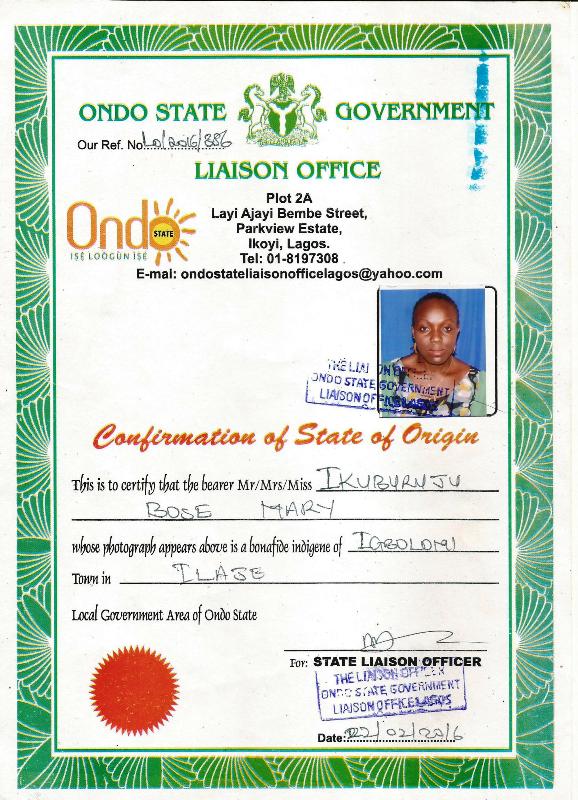 ONDO STATE GOVERNMENT
Our Ref. No. LO/2016/886
LIAISON OFFICE
Plot 2A
Layi Ajayi Bembe Street,
Parkview Estate,
Ikoyi, Lagos.
Tel: 01-8197308
E-mal: ondostateliaisonofficelagos@yahoo.com
Ondo
STATE
IṢẸ́ LOÒGÙN ÌṢẸ́
ONDO STATE GOVERNMENT
LIAISON OFFICE LAGOS
Confirmation of State of Origin
This is to certify that the bearer Mr/Mrs/Miss IKUBURUJU
BOSE MARY
whose photograph appears above is a bonafide indigene of IGBOLOMI
Town in ILAJE
Local Government Area of Ondo State
For: STATE LIAISON OFFICER
THE LIAISON OFFICER
ONDO STATE GOVERNMENT
LIAISON OFFICE LAGOS
Date: 22/02/2016